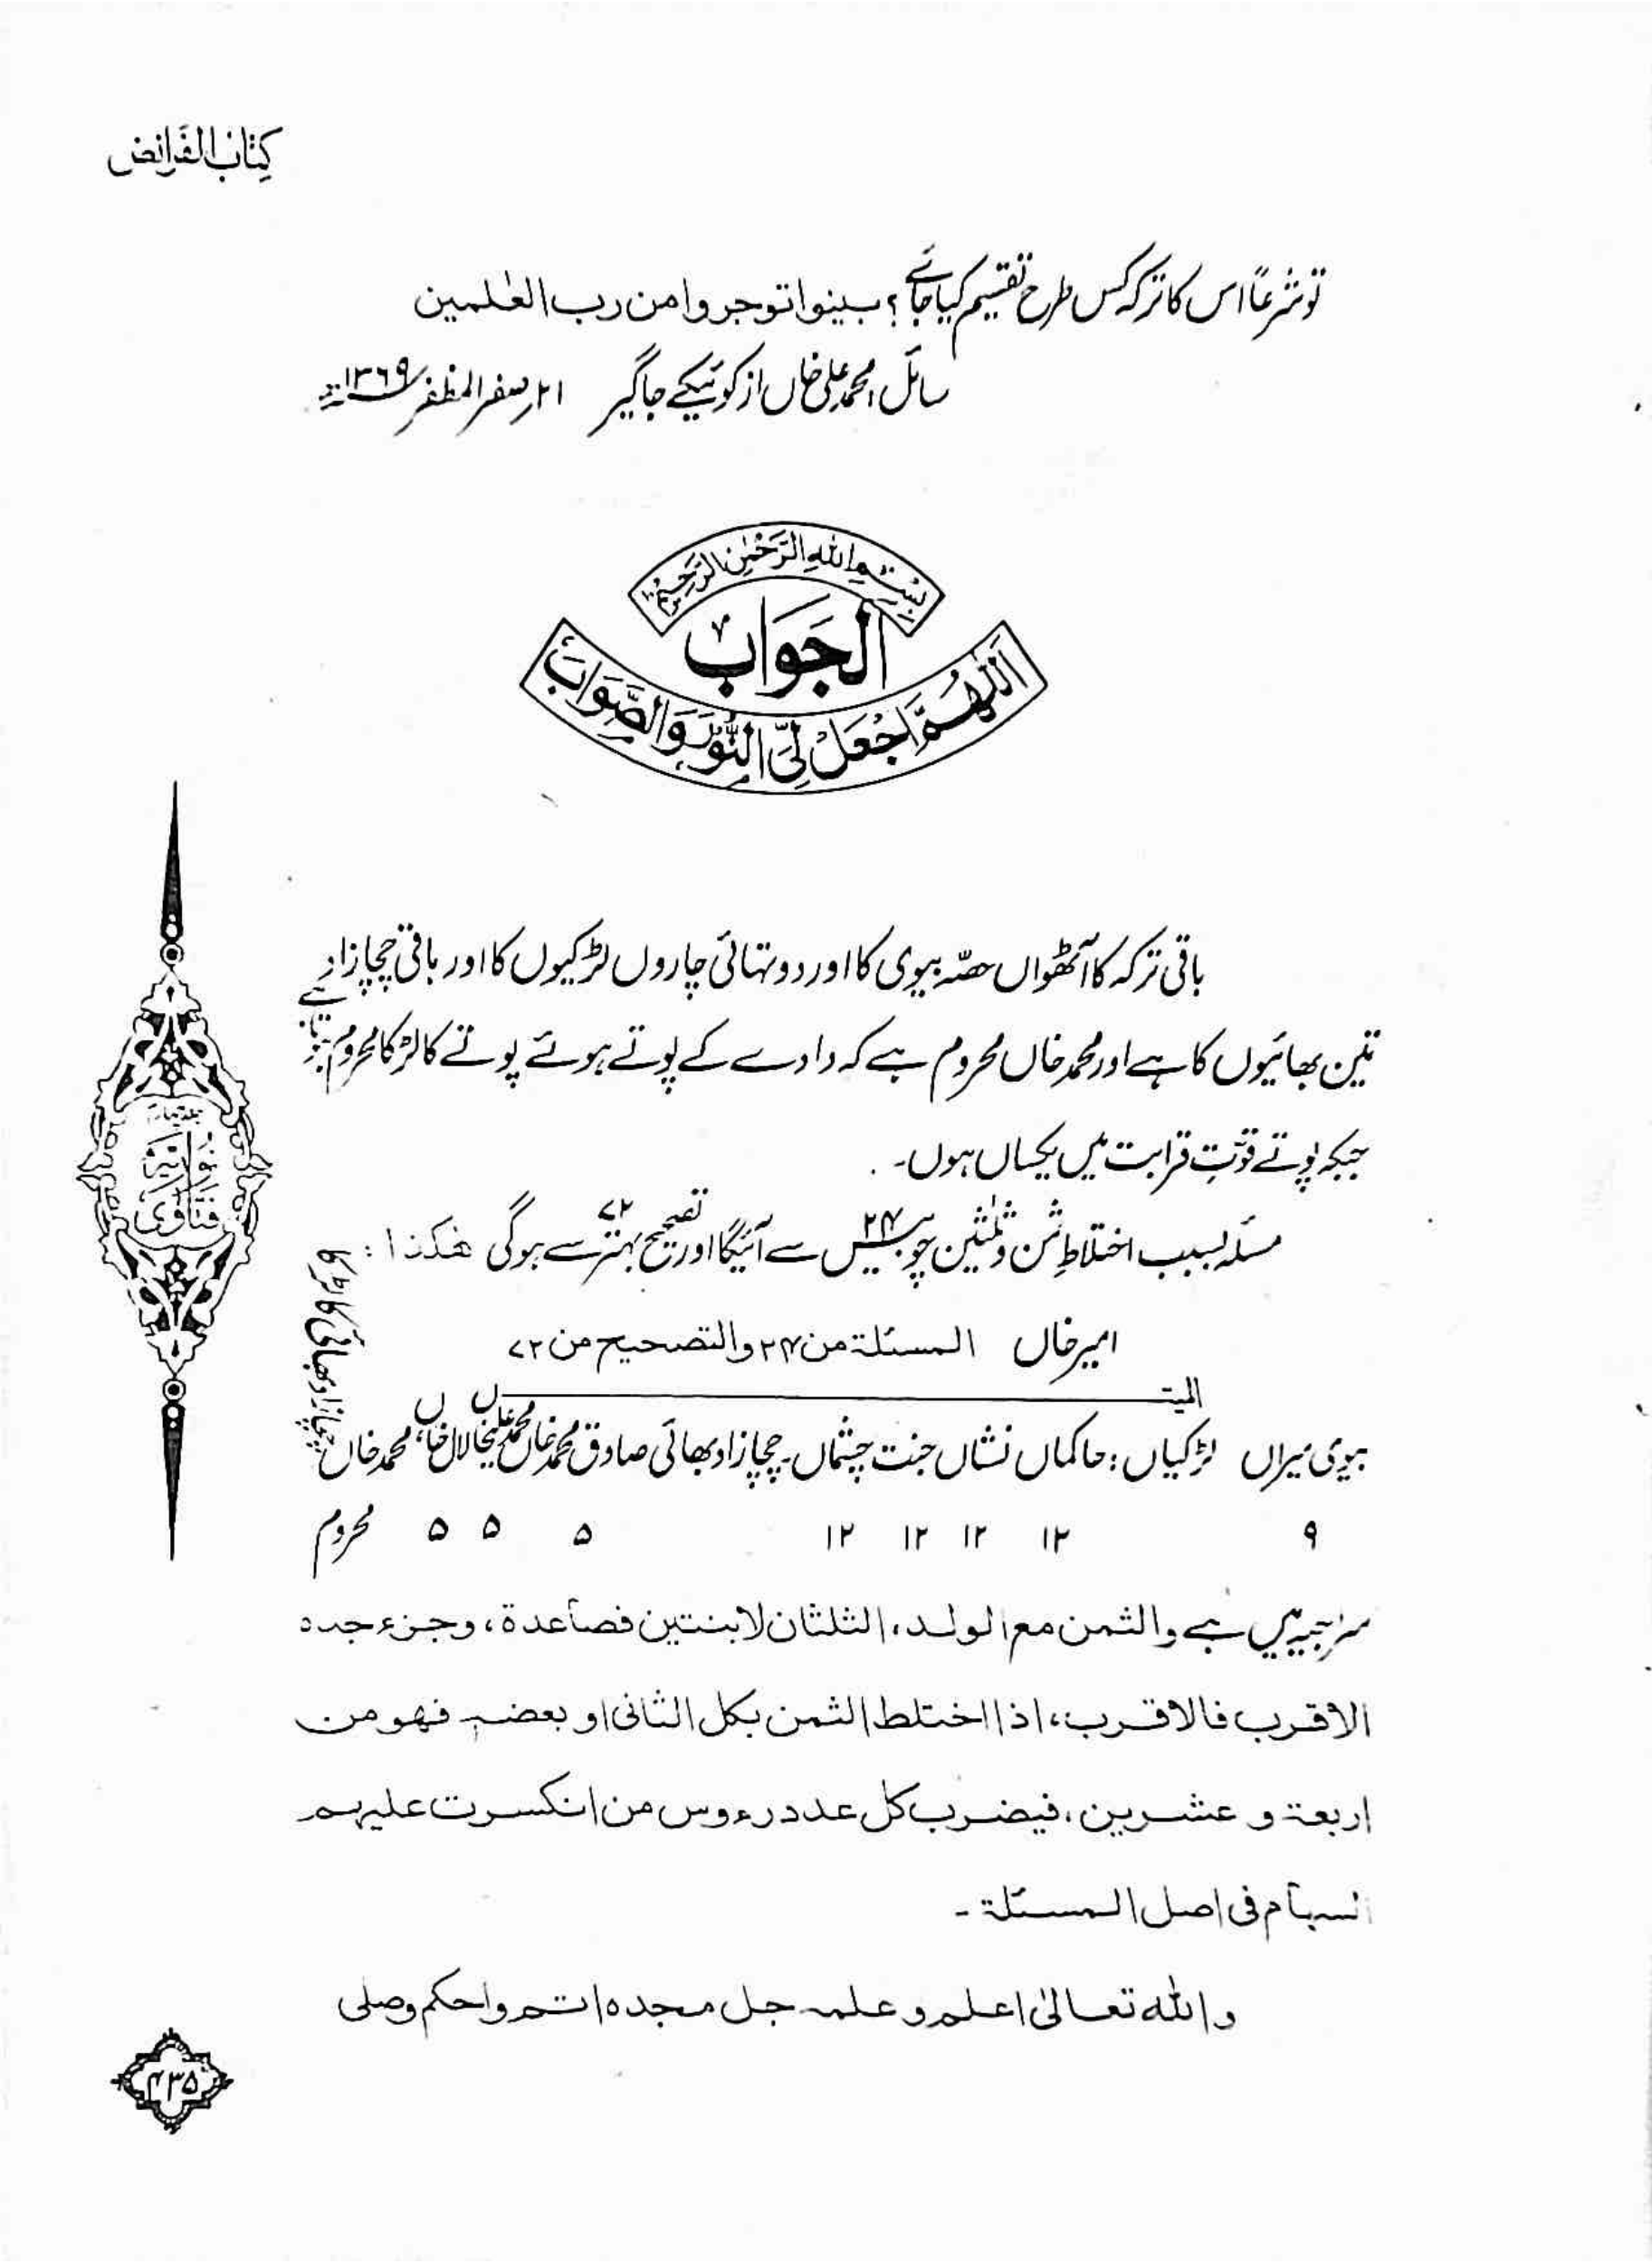 کتاب الفرائض
تو شرعًا اس کا ترکہ کس طرح تقسیم کیا جائے؟ بینوا توجروا من رب العٰلمین
سائل محمد علی خاں از کوئیکے جاگیر ۲۱ر صفر المظفر ۱۳۶۹ھ
بِسْمِ اللهِ الرَّحْمٰنِ الرَّحِیْمِ
الجَوَاب
اَللّٰهُمَّ اجْعَلْ لِیَ النُّوْرَ وَالصَّوَابَ
باقی ترکہ کا آٹھواں حصّہ بیوی کا اور دو تہائی چاروں لڑکیوں کا اور باقی چچازاد
تین بھائیوں کا ہے اور محمد خاں محروم ہے کہ دادے کے پوتے ہوئے پوتے کا لڑکا محروم ہوتا ہے
جبکہ پوتے قوّتِ قرابت میں یکساں ہوں۔
مسئلہ بسبب اختلاطِ ثمن و ثلثین چوبیس ۲۴ سے آئیگا اور تصحیح بہتر ۷۲ سے ہوگی ھٰکذا :
امیر خاں المسئلة من ۲۴ والتصحیح من ۷۲
المیت
بیوی میراں لڑکیاں : حاکماں نشاں جنت چشماں۔ چچازاد بھائی صادق محمد خاں محمد علی خاں لال خاں، محمد خاں چچازاد بھائی کا لڑکا
۹ ۱۲ ۱۲ ۱۲ ۱۲ ۵ ۵ ۵ محروم
سراجیہ میں ہے والثمن مع الولد، الثلثان لابنتین فصاعدة، وجزء جده
الاقرب فالاقرب، اذا اختلط الثمن بکل الثانی او بعضہ فهو من
اربعة و عشرین، فیضرب کل عدد رءوس من انکسرت علیہم
السہام فی اصل المسئلة ۔
والله تعالیٰ اعلم و علمہ جل مجده اتم واحکم وصلی
جلد چہارم
فتاویٰ نوریہ
۴۳۵